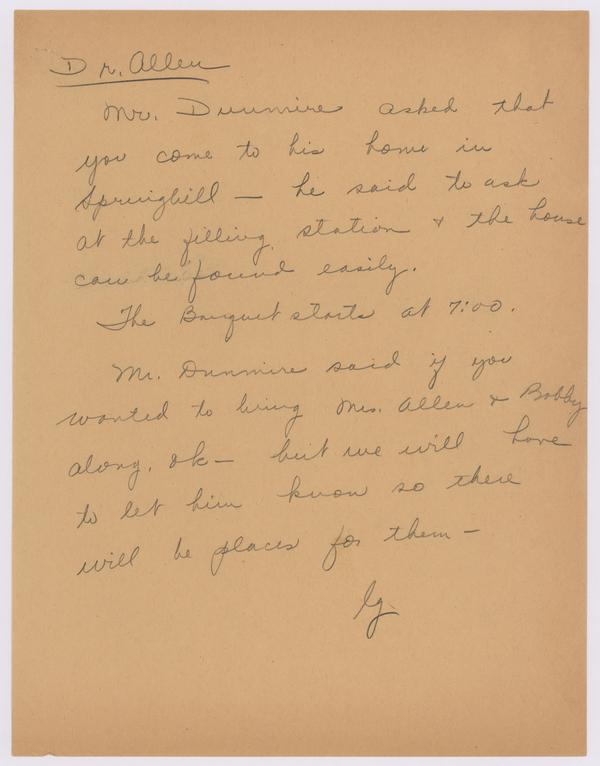 Dr. Allen
Mr. Dunmire asked that
you come to his home in
Springhill — he said to ask
at the filling station & the house
can be found easily.
The Banquet starts at 7:00.
Mr. Dunmire said if you
wanted to bring Mrs. Allen & Bobby
along, ok — but we will have
to let him know so there
will be places for them —